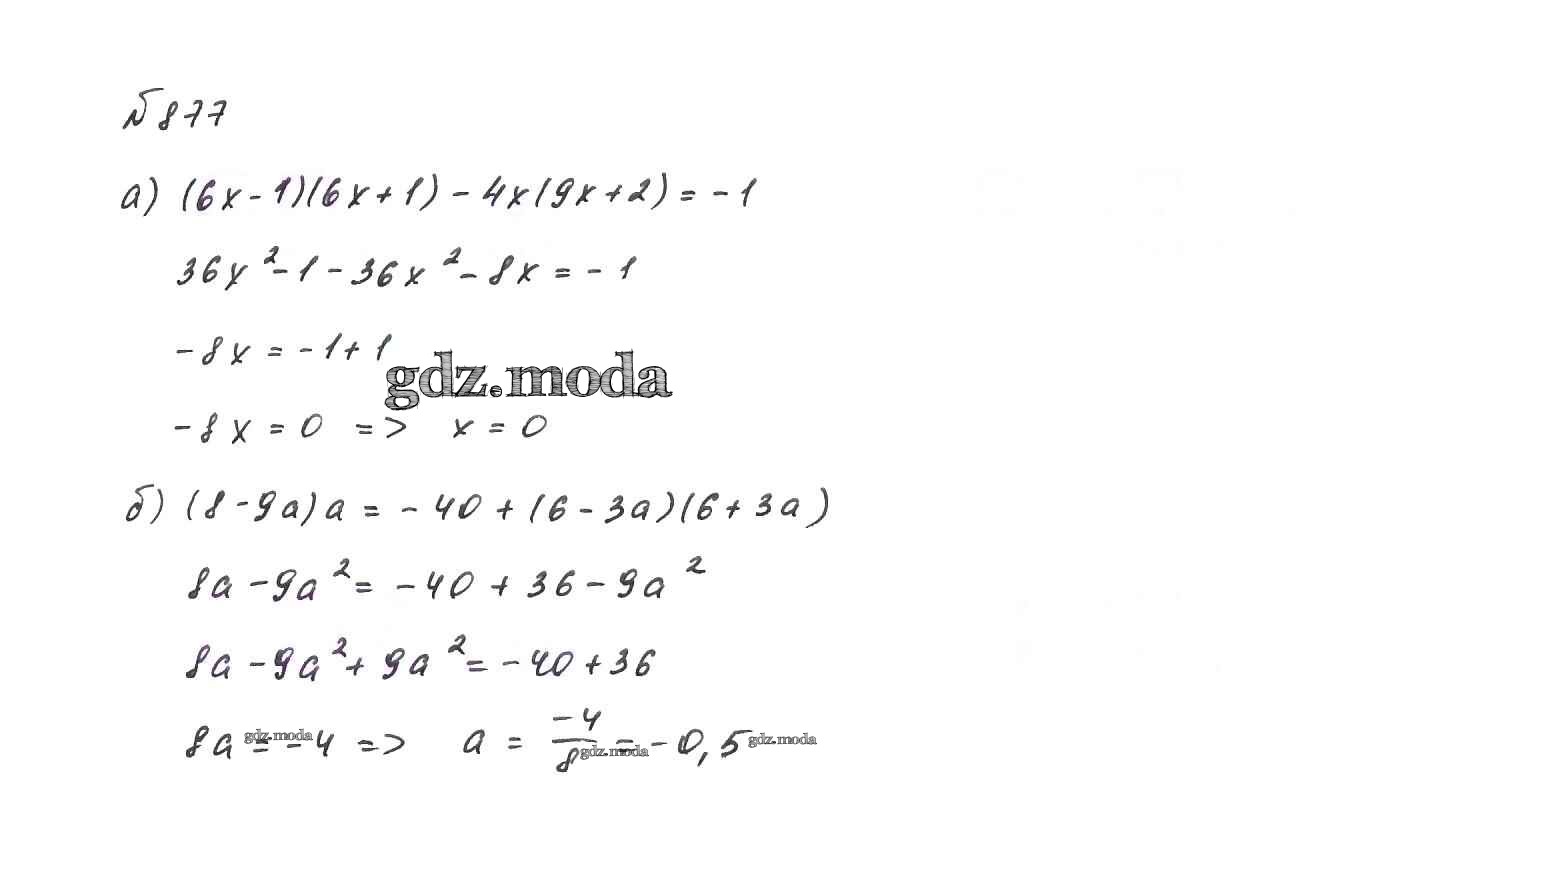 № 877
а) (6x - 1)(6x + 1) - 4x(9x + 2) = - 1
36x² - 1 - 36x² - 8x = - 1
- 8x = - 1 + 1
gdz.moda
- 8x = 0 => x = 0
б) (8 - 9a)a = - 40 + (6 - 3a)(6 + 3a)
8a - 9a² = - 40 + 36 - 9a²
8a - 9a² + 9a² = - 40 + 36
8a = - 4 => a = -4/8 = - 0,5
gdz.moda gdz.moda gdz.moda